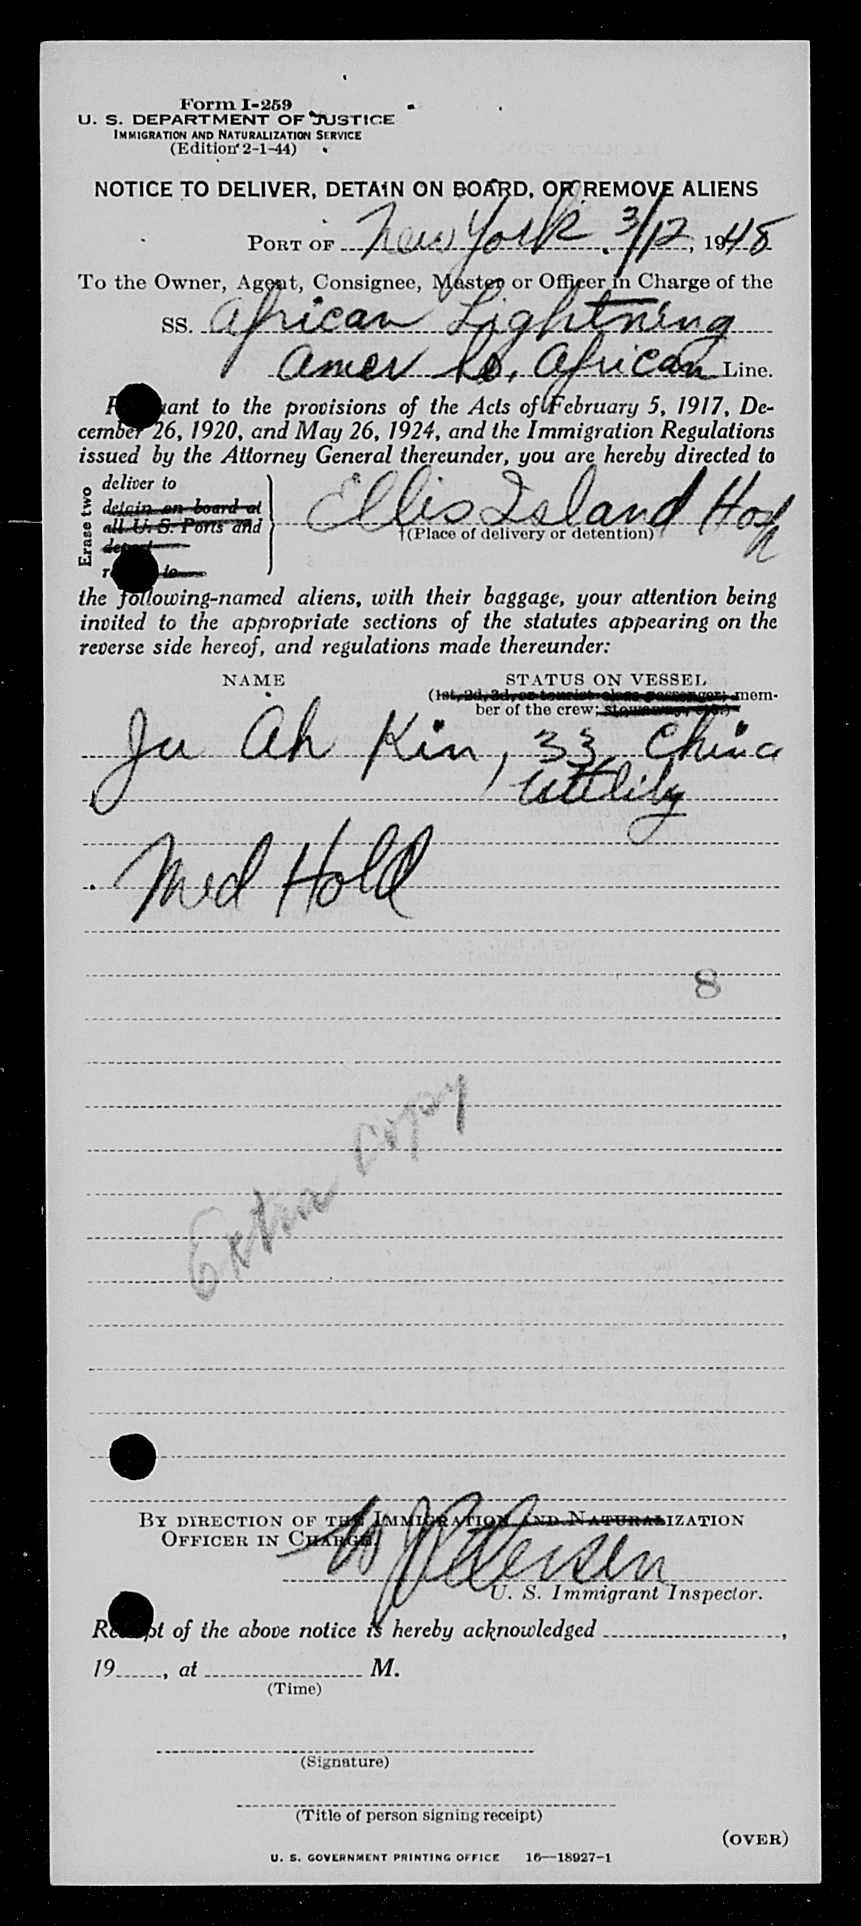 Form I-259
U. S. DEPARTMENT OF JUSTICE
IMMIGRATION AND NATURALIZATION SERVICE
(Edition 2-1-44)
NOTICE TO DELIVER, DETAIN ON BOARD, OR REMOVE ALIENS
PORT OF New York. 3/12, 1948
To the Owner, Agent, Consignee, Master or Officer in Charge of the
SS. African Lightning
Amer So. African Line.
Pursuant to the provisions of the Acts of February 5, 1917, De-
cember 26, 1920, and May 26, 1924, and the Immigration Regulations
issued by the Attorney General thereunder, you are hereby directed to
Erase two
deliver to
detain on board at
all U. S. Ports and
deport
to
Ellis Island Hosp
†(Place of delivery or detention)
the following-named aliens, with their baggage, your attention being
invited to the appropriate sections of the statutes appearing on the
reverse side hereof, and regulations made thereunder:
NAME STATUS ON VESSEL
(1st, 2d, 3d, or tourist class passenger; mem-
ber of the crew; stowaway, etc.)
Ju Ah Kin, 33, China
Utility
Med Hold
8
Extra Copy
BY DIRECTION OF THE IMMIGRATION AND NATURALIZATION
OFFICER IN CHARGE.
W J Petersen
U. S. Immigrant Inspector.
Receipt of the above notice is hereby acknowledged ,
19 , at M.
(Time)
(Signature)
(Title of person signing receipt)
(OVER)
U. S. GOVERNMENT PRINTING OFFICE 16—18927-1